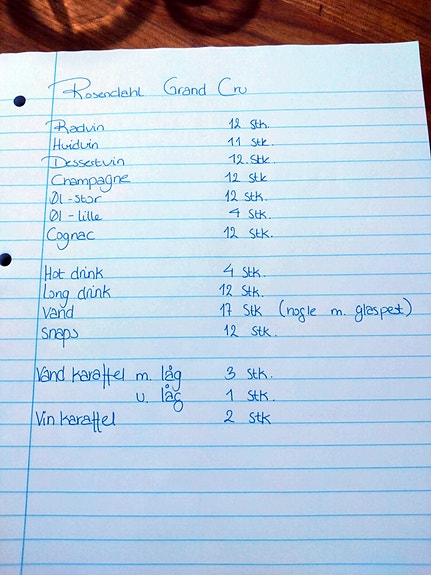 Rosendahl Grand Cru
Rødvin 12 stk.
Hvidvin 11 stk.
Dessertvin 12 stk.
Champagne 12 stk
Øl - stor 12 stk.
Øl - lille 4 stk.
Cognac 12 stk.
Hot drink 4 stk.
Long drink 12 stk.
Vand 17 stk (nogle m. glaspest)
Snaps 12 stk.
Vand karaffel m. låg 3 stk.
u. låg 1 stk.
Vin karaffel 2 stk